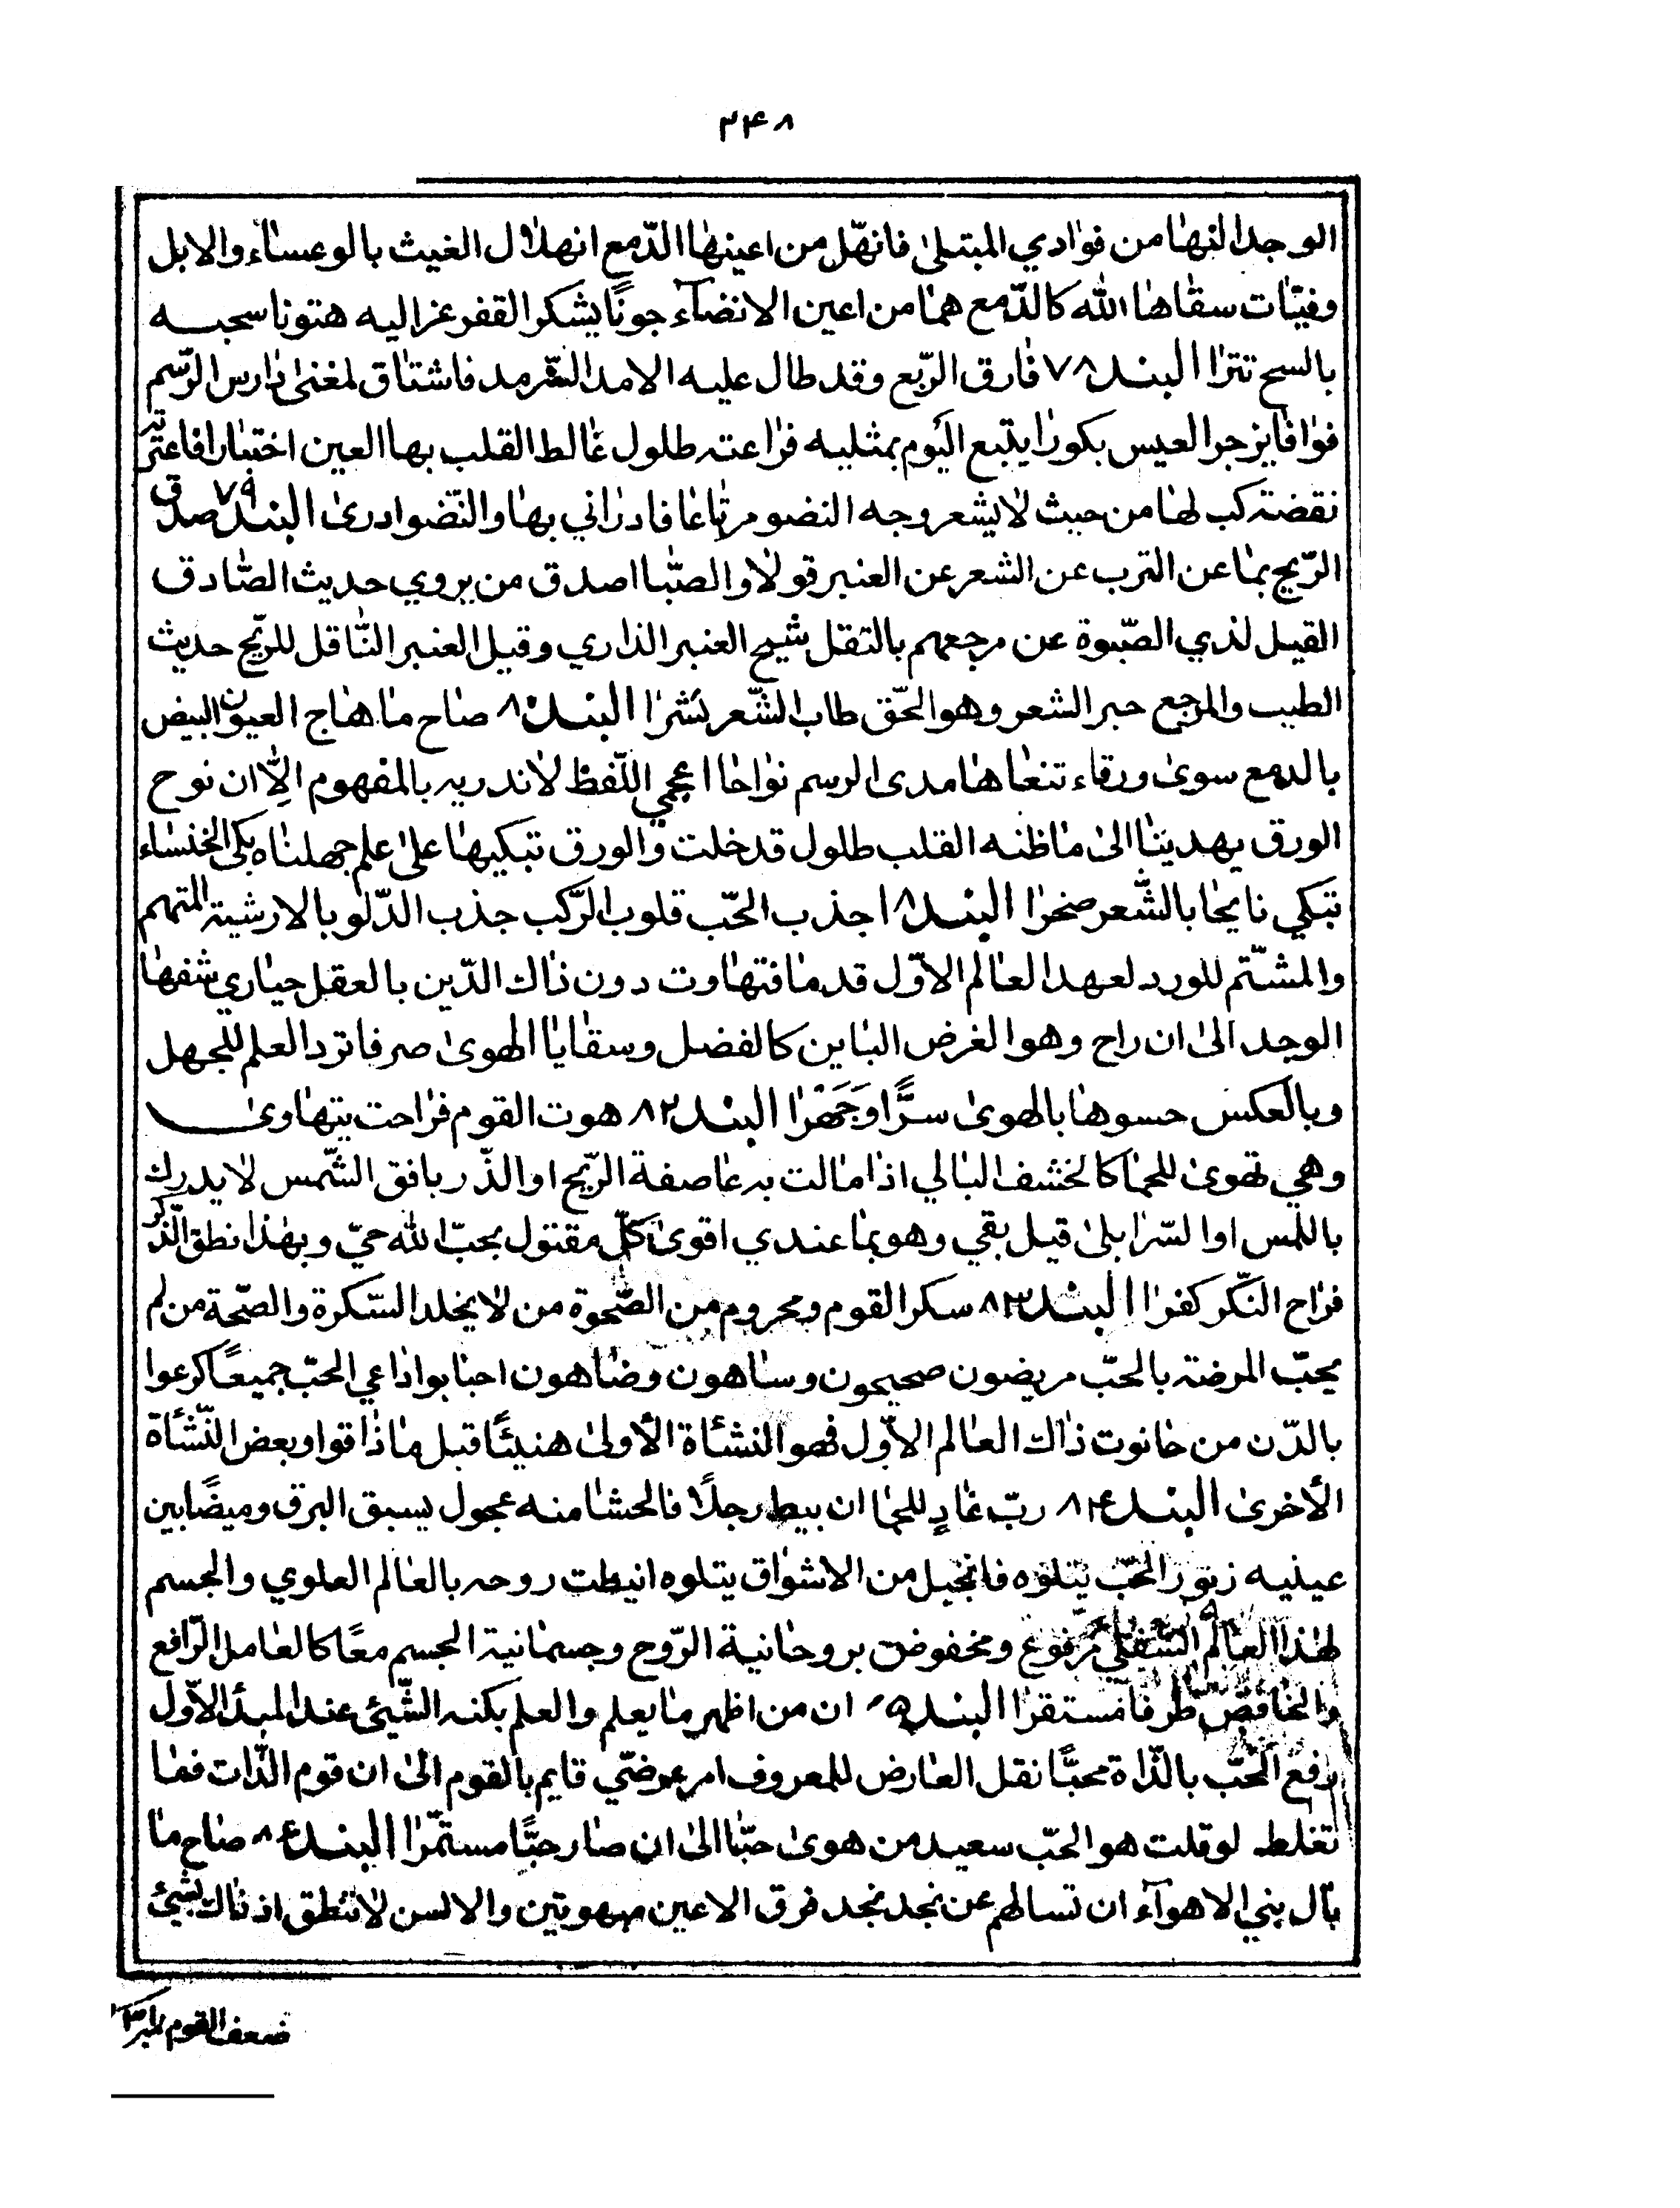 ٢٤٨
الوجد النهامن فوادي المبتلى فانهّل من اعينها الدّمع انهلال الغيث بالوعساء والابل
وفيّات سقاها الله كالدّمع همامن اعين الانضآء جونًا يشكر القفر عزاليه هتونا سحبه
بالسح تترا البند ٧٨ فارق الرّبع وقد طال عليه الامد السّرمد فاشتاق لمغنى دارس الرّسم
فوافا يزجر العيس بكورا يتبع اليوم بمثليه فراعته طلول غالط القلب بها العين اختبارا فاعترته
نقضة كب لها من حيث لا يشعر وجه النضو مرتاعا فادراني بها والنّضو ادرى البند ٧٩ صدق
الرّيح بما عن الترب عن الشعر عن العنبر قولا والصّبا اصدق من يروي حديث الصّادق
القيل لذي الصّبوة عن مرجعهم بالتقل شيح العنبر الذاري وقيل العنبر النّاقل للرّيح حديث
الطيب والمرجع حبر الشعر وهو الحّق طاب الشّعر نشرا البند ٨٠ صاح ما هاج العيون البيض
بالدمع سوى ورقاء تنعاها مدى الرسم نواحا اعجمي اللّفظ لا ندريه بالمفهوم الّا ان نوح
الورق يهديناالى ماظنه القلب طلول قد خلت والورق تبكيها على علم جهلناه بكى الخنساء
تبكي نايحا بالشّعر صخرا البند ٨١ جذب الحّب قلوب الرّكب جذب الدّلو بالارشية المتهم
والمشتّم للورد لعهد العالم الاوّل قد ما فتهاوت دون ذاك الدّين بالعقل حيارى شفها
الوجد الى ان راح وهو الغرض الباين كالفضل وسقايا الهوى صرفا ترد العلم للجهل
وبالعكس حسوها بالهوى سرًّا وجَهْرا البند ٨٢ هوت القوم فراحت يتهاوى
وهي تهوى للحما كالخشف البالي اذا مالت به عاصفة الرّيح او الذّر بافق الشّمس لا يدرك
باللمس او السّرا بلى قيل بقي وهو بما عندي اقوى كلّ مقتول بحبّ الله حيّ وبهذا نطق الذّكر
فراح النّكر كفرا البند ٨٣ سكر القوم ومحروم من الصّحوة من لا يخلد السّكرة والصّحة من لم
يحبّ المرضة بالحبّ مريضون صحيحون وساهون وضاهون احنابوا داعي الحبّ جميعًا كرعوا
بالدّن من حانوت ذاك العالم الاوّل فهو النشأة الأولى هنيئًا قبل ما ذاقوا وبعض النّشأة
الأخرى البند ٨٤ ربّ غادٍ للحما ان بيط رجلًا فالحشا منه عجول يسبق البرق وميضًا بين
عينيه زبور الحّب يتلوه فانجيل من الاشواق يتلوه انيطت روحه بالعالم العلوي والجسم
لهذا العالم السّفلي مرفوع ومخفوض بروحانية الرّوح وجسمانية الجسم معًا كالعامل الرّافع
والخافض طرفا مستقرا البند ٨٥ ان من اظهر ما يعلم والعلم بكنه الشّيئ عند المبدأ الاوّل
رفع الحّب بالذّاة محبًّا نقل العارض للمعروف امر عرضّي قايم بالقوم الى ان قوم الذّات فما
تغلط لو قلت هو الحّب سعيد من هوى حبّا الى ان صار حبًّا مستمّرا البند ٨٦ صاح ما
بال بني الاهوآء ان تسالهم عن نجد نجد فرق الاعين مبهوتين والالسن لا تنطق اذ ذاك بشيئ
ضعف القوم